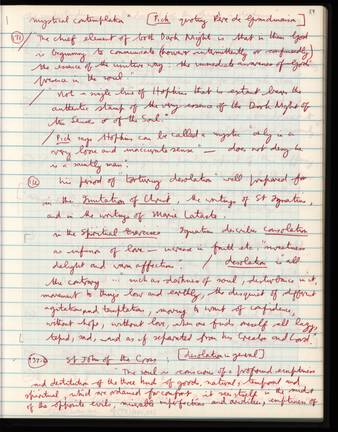 mystical contemplation" [Pick quoting Père de Grandmaison] 39
(71) The chief element of both Dark Night is that in them God
is beginning to communicate (however intermittently or confusedly)
the essence of the unitive way: the immediate awareness of God's
presence in the soul."
/ "Not a single line of Hopkins that is extant bears the
authentic stamp of the very essence of the Dark Night of
the Sense or of the Soul."
/ Pick says Hopkins can be called a mystic "only in a
very loose and inaccurate sense" — does not deny he
is a saintly man.
his period of "torturing desolation" well prepared for
in the Imitation of Christ, the writings of St Ignatius,
and in the writings of Marie Lataste.
in the Spiritual Exercises Ignatius describes consolation
as infusion of love — increase in faith etc "sweetness
delight and warm affection." / desolation is "all
the contrary ... such as darkness of soul, disturbance in it,
movement to things low and earthly, the disquiet of different
agitations and temptations, moving to want of confidence,
without hope, without love, when one finds oneself all lazy,
tepid, sad, and as if separated from his Creator and Lord.
St John of the Cross: [desolation general]
The soul is conscious of a profound emptiness
and destitution of the three kinds of goods, natural, temporal and
spiritual, which are ordained for comfort, it sees itself in the midst
of the opposite evils, miserable imperfections and aridities, emptiness of